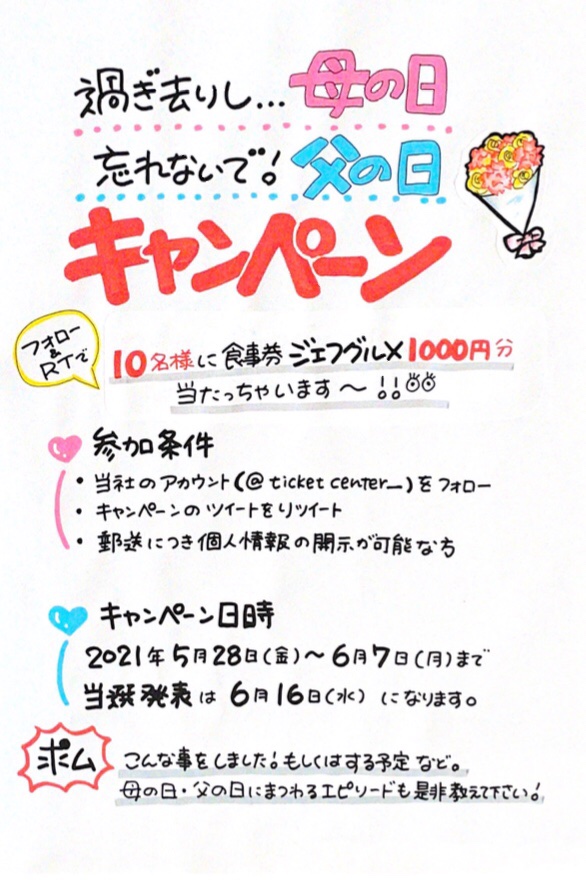 過ぎ去りし...母の日
忘れないで!父の日
キャンペーン
フォロー
&
RTで
10名様に食事券ジェフグル×1000円分
当たっちゃいます〜!!
参加条件
・当社のアカウント(@ticketcenter_)をフォロー
・キャンペーンのツイートをリツイート
・郵送につき個人情報の開示が可能な方
キャンペーン日時
2021年5月28日(金)〜6月7日(月)まで
当選発表は6月16日(水)になります。
求ム
こんな事をしました!もしくはする予定など。
母の日・父の日にまつわるエピソードも是非教えて下さい!